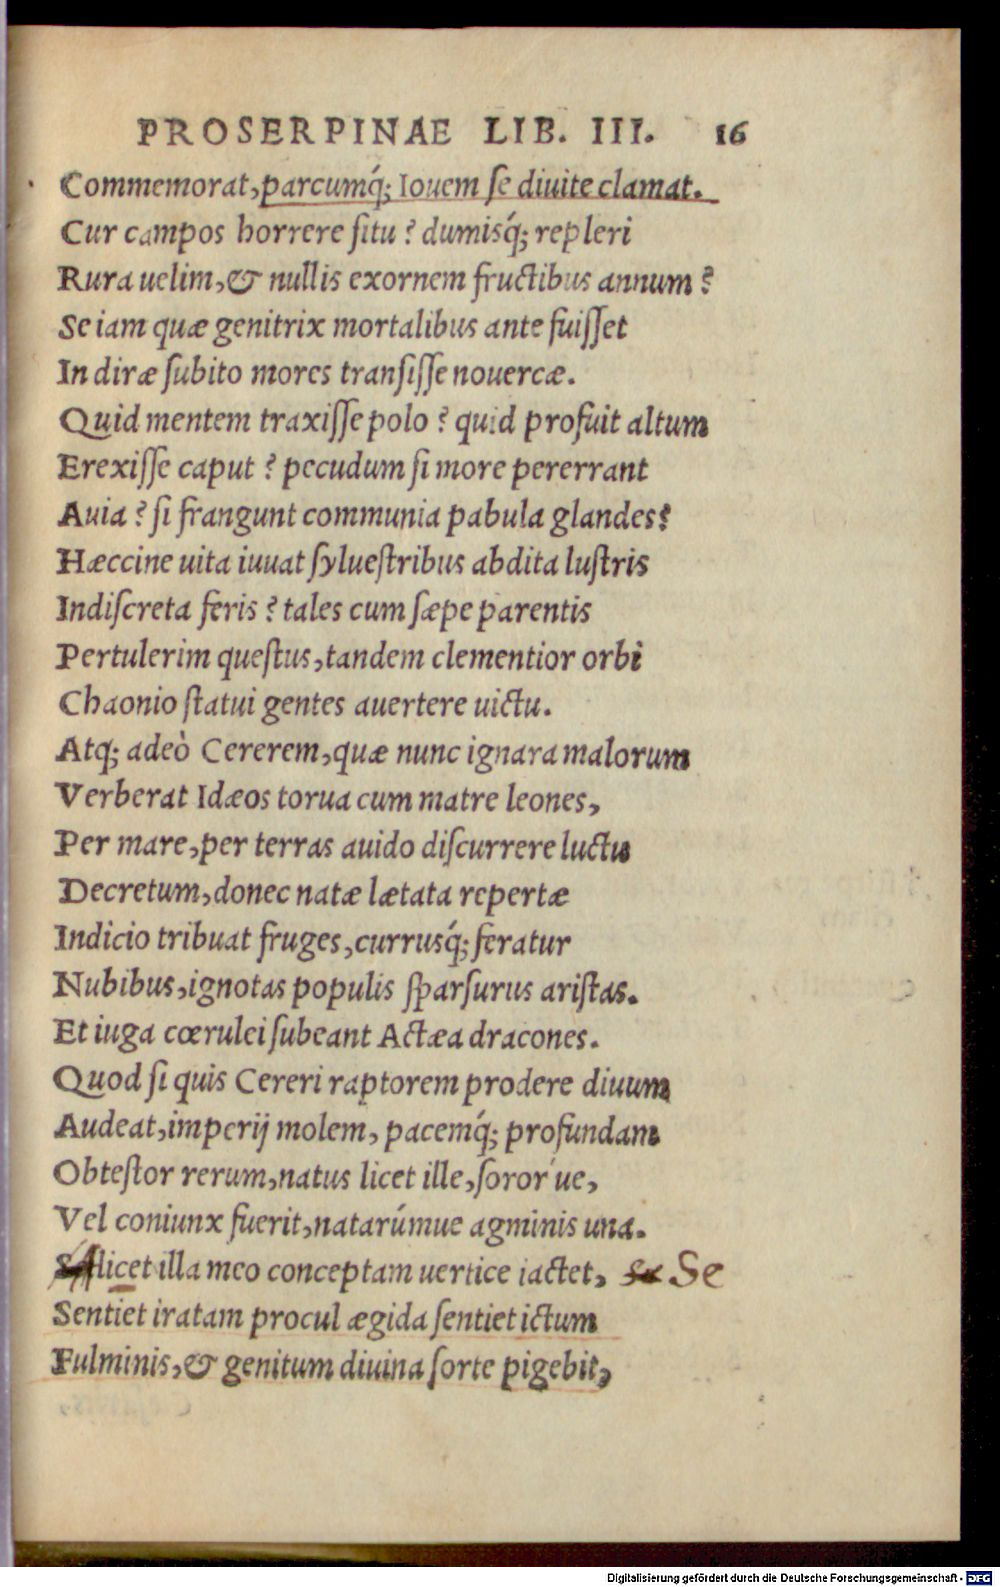 PROSERPINAE LIB. III. 16
Commemorat, parcumq́; Iouem se diuite clamat.
Cur campos horrere situ? dumisq́; repleri
Rura uelim, & nullis exornem fructibus annum?
Se iam quæ genitrix mortalibus ante fuisset
In diræ subito mores transisse nouercæ.
Quid mentem traxisse polo? quid profuit altum
Erexisse caput? pecudum si more pererrant
Auia? si frangunt communia pabula glandes?
Hæccine uita iuuat syluestribus abdita lustris
Indiscreta feris? tales cum sæpe parentis
Pertulerim questus, tandem clementior orbi
Chaonio statui gentes auertere uictu.
Atq; adeò Cererem, quæ nunc ignara malorum
Verberat Idæos torua cum matre leones,
Per mare, per terras auido discurrere luctu
Decretum, donec natæ lætata repertæ
Indicio tribuat fruges, currusq́; feratur
Nubibus, ignotas populis sparsurus aristas.
Et iuga cœrulei subeant Actæa dracones.
Quod si quis Cereri raptorem prodere diuum
Audeat, imperij molem, pacemq́; profundam
Obtestor rerum, natus licet ille, soror ue,
Vel coniunx fuerit, natarúmue agminis una.
licet illa meo conceptam uertice iactet, Se
Sentiet iratam procul ægida sentiet ictum
Fulminis, & genitum diuina sorte pigebit,
Digitalisierung gefördert durch die Deutsche Forschungsgemeinschaft - DFG